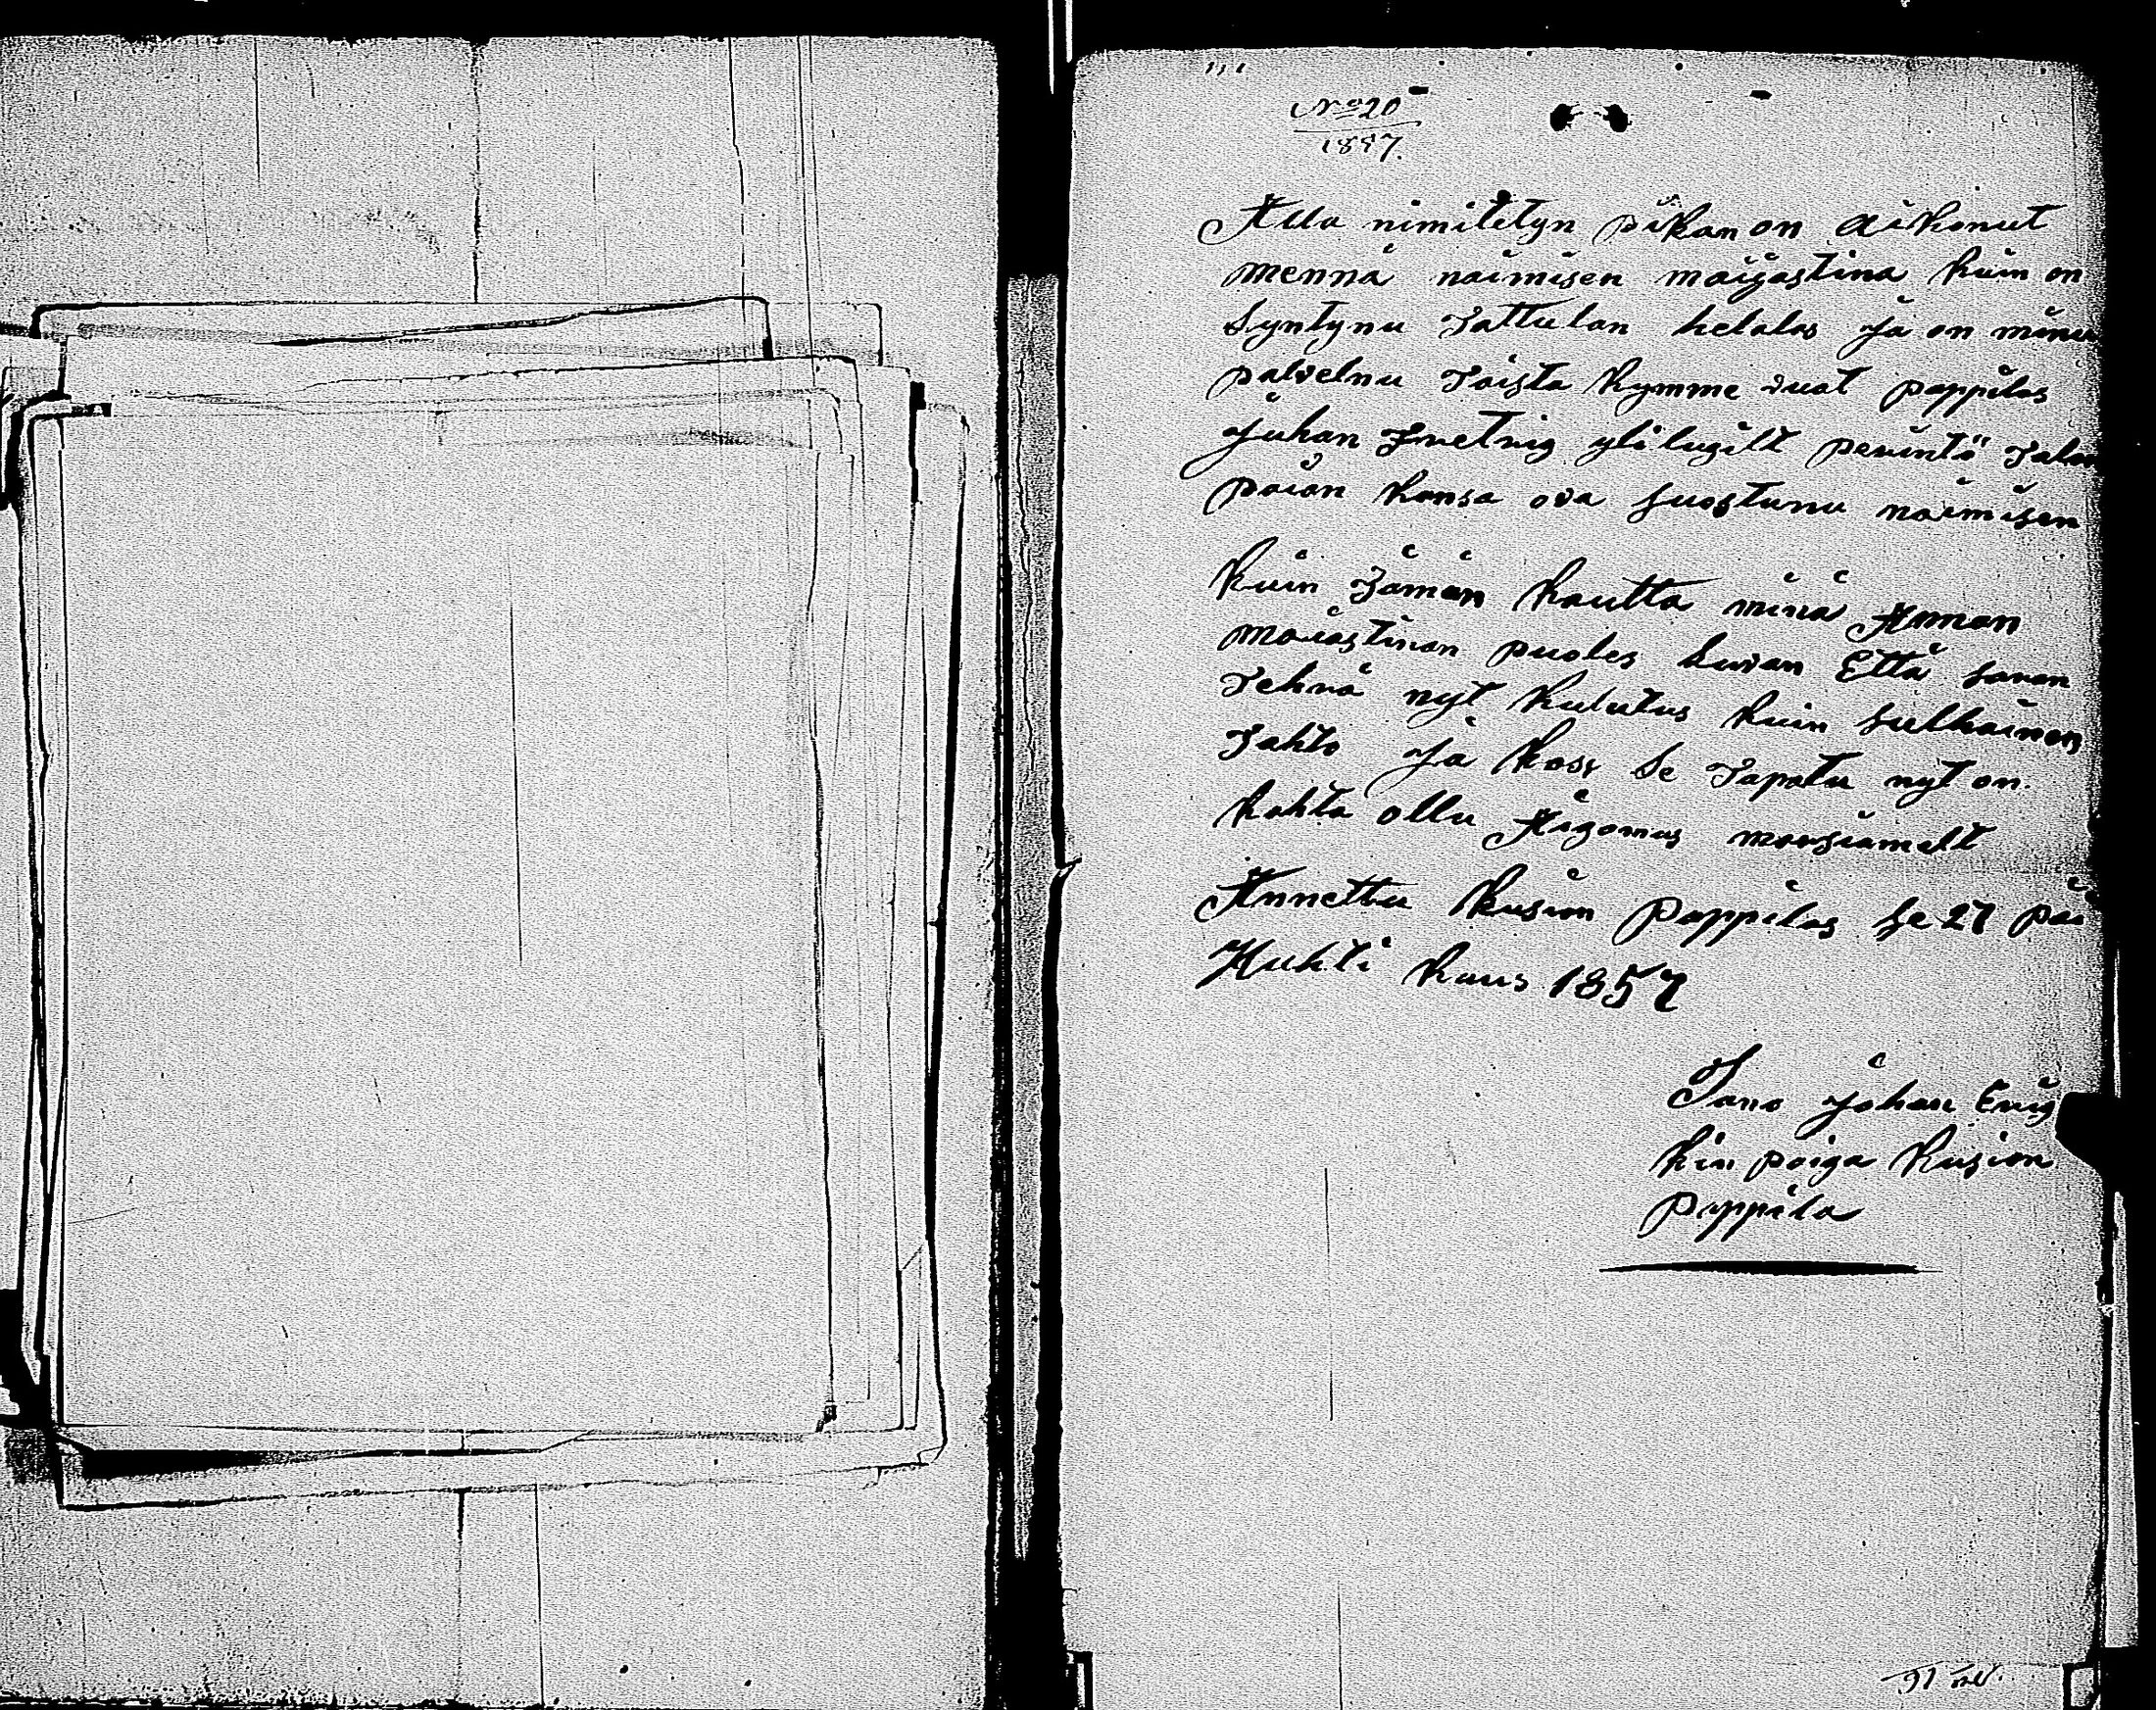 No 20
1857.
Alla nimitetyn pikan on aikonut
mennä naimisen maijastina kuin on
Syntynu Tattulan helalas ja on minu
palvelnu Toista kymme vuat pappilas
juhan yli lugilt perintö Talon
poian kansa ova suostunu naimisen
kuin Tämän kautta minä Annan
maiastinan puoles luvan Että savan
Tehnä nyt kulutus kuin Julkainen
Tahto ja koss se Tapatu nyt on.
kahta ollu Aigomus morsiamelt
Annettu kusion Pappilas se 27 päi
Huhti kaus 1857
Tano johan Erig
kin poiga kusion
Pappila